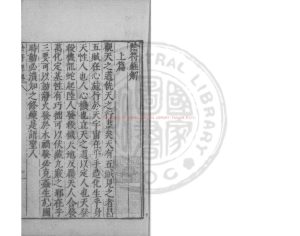 陰符經解
上篇
觀天之道執天之行盡矣天有五賊見之者昌
五賊在心施行於天宇宙在乎手萬化生乎身
天性人也人心機也立天之道以定人也天發
殺機龍蛇起陸人發殺機天地反覆天人合發
萬化定基性有巧拙可以伏藏九竅之邪在乎
三要可以動靜火發於木禍發必克姦生於國
時動必潰知之修鍊謂之聖人
TRAL LIBRAR